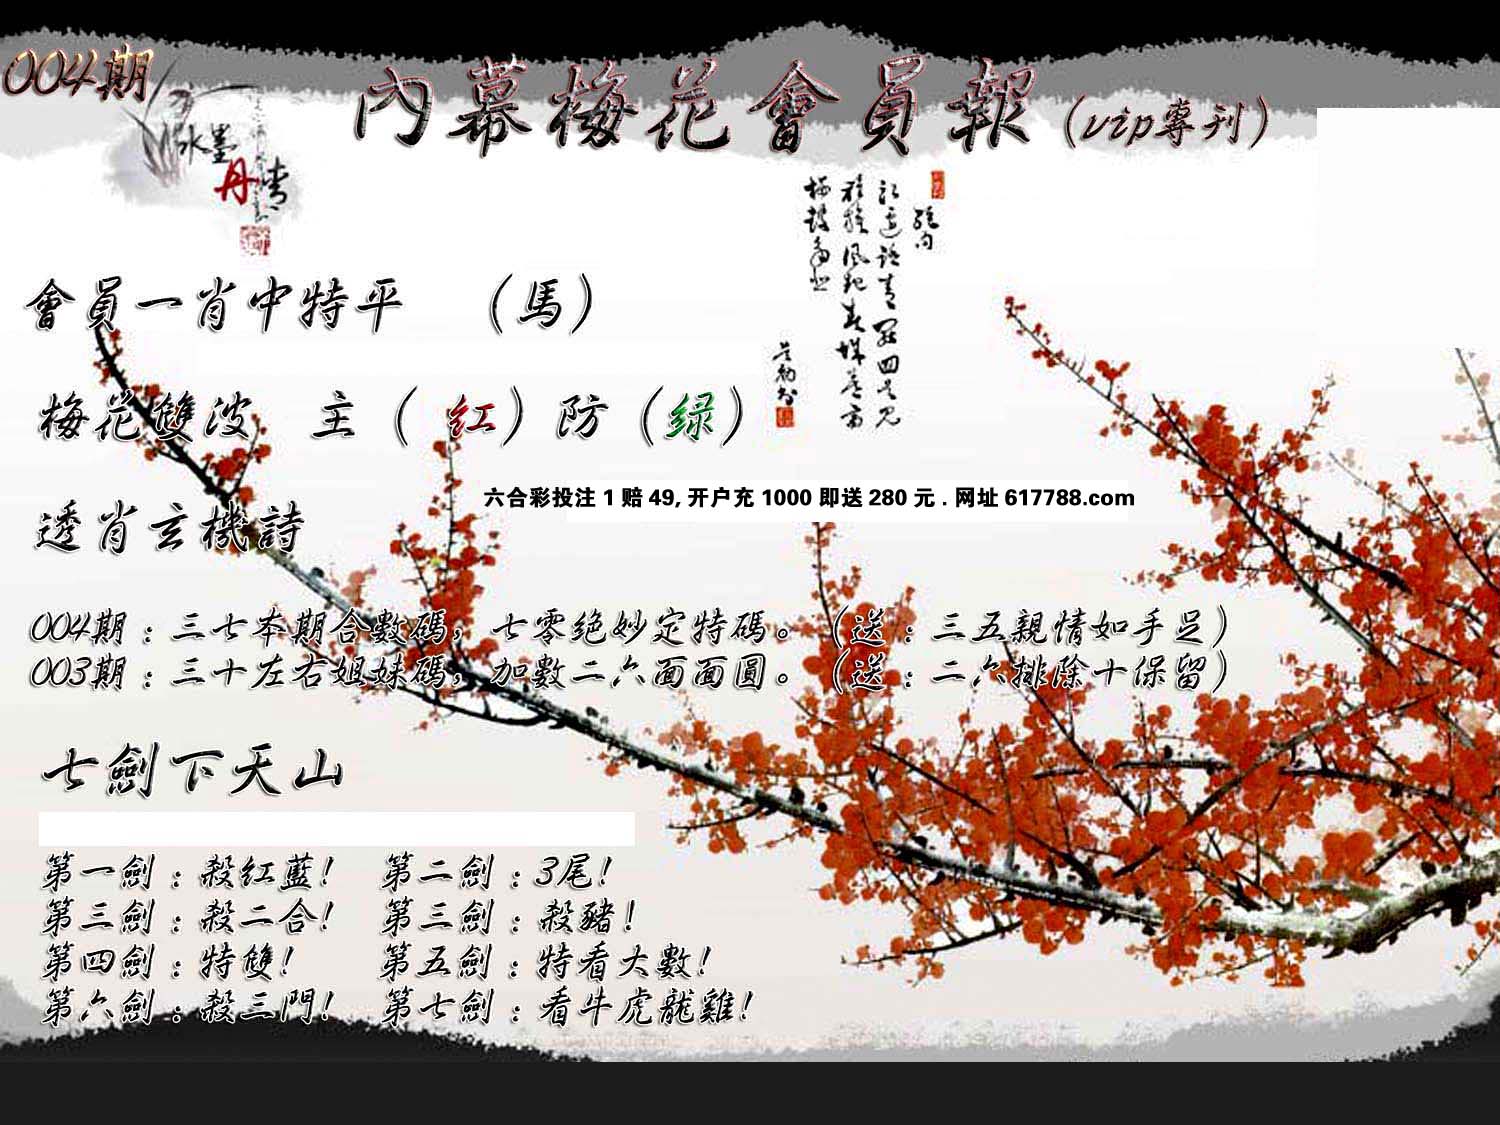 004期
內幕梅花會員報（vip專刊）
水墨
丹青
會員一肖中特平 （馬）
梅花雙波 主（紅）防（绿）
六合彩投注1赔49,开户充1000即送280元.网址617788.com
透肖玄機詩
004期：三七本期合數碼，七零绝妙定特碼。（送：三五親情如手足）
003期：三十左右姐妹碼，加數二六面面圓。（送：二六排除十保留）
七劍下天山
第一劍：殺红藍！ 第二劍：3尾！
第三劍：殺二合！ 第三劍：殺豬！
第四劍：特雙！ 第五劍：特看大數！
第六劍：殺三門！ 第七劍：看牛虎龍雞！